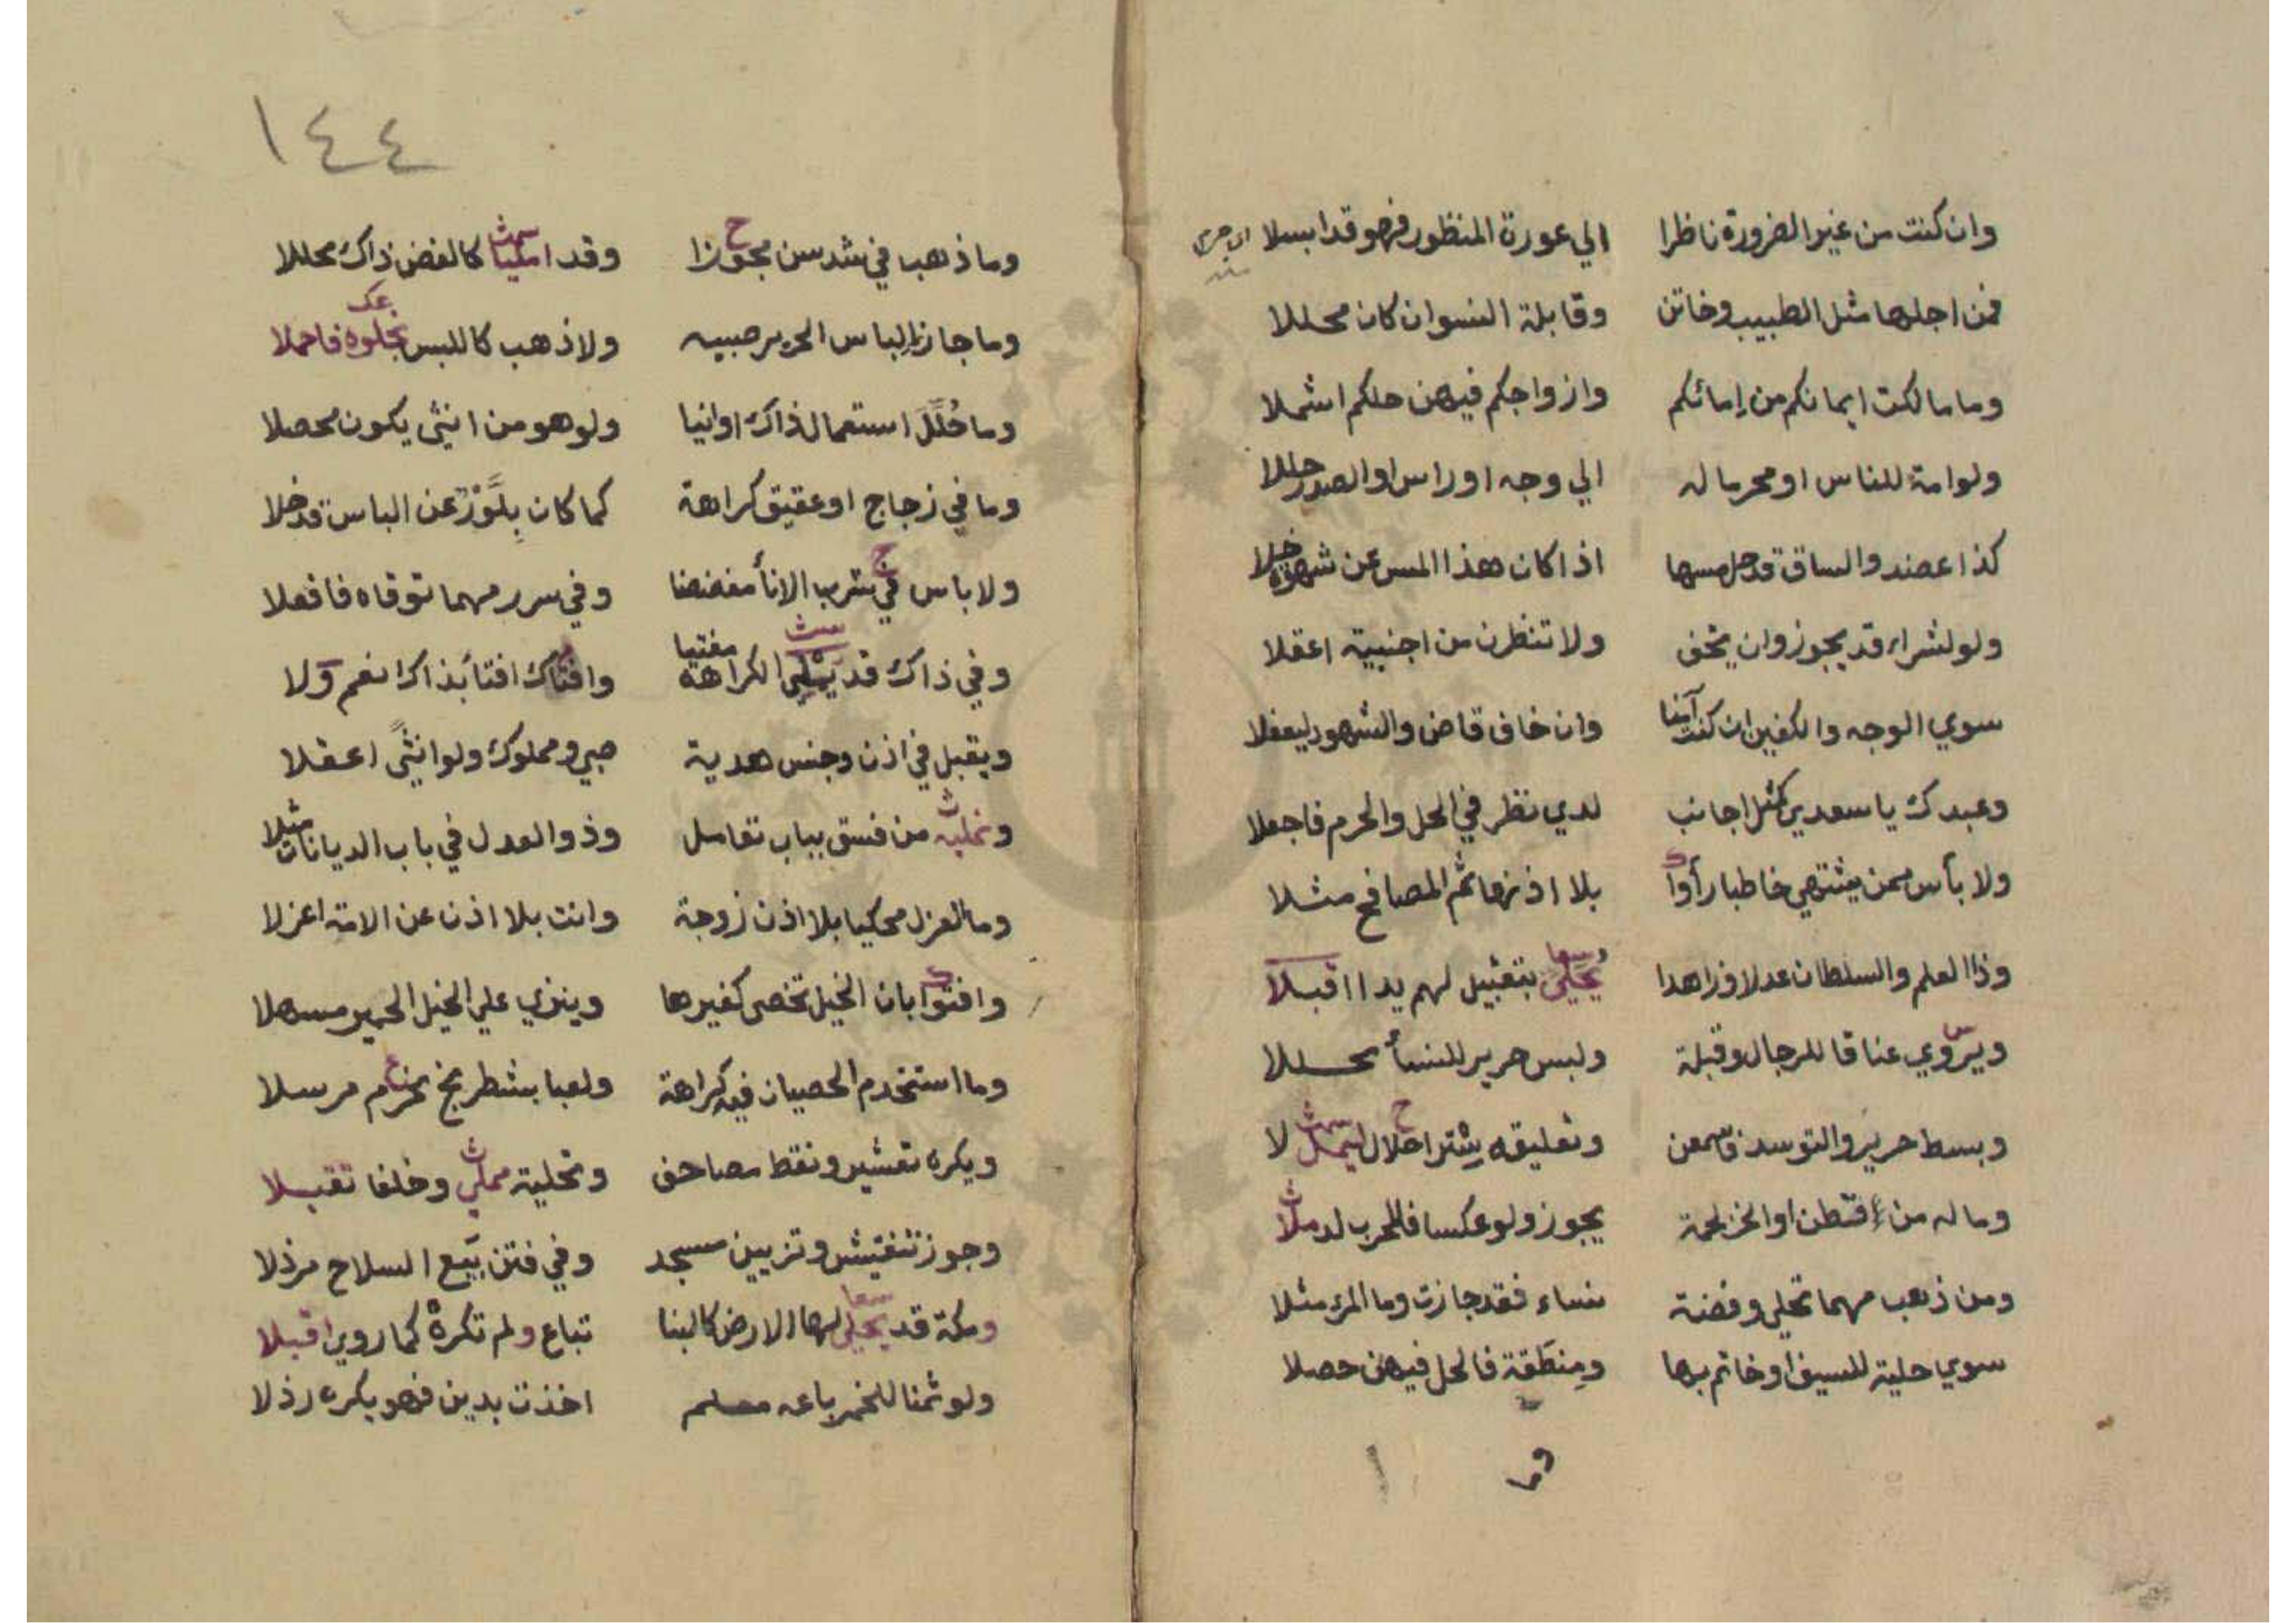 وان كنت من غير الضرورة ناظرا الي عورة المنظور فهو قد ابسلا
فمن اجلها مثل الطبيب وخاتن وقابلة النسوان كان محللا
وما مالكت ايمانكم من إمائكم وازواجكم فيهن حلكم اشملا
ولو امة للناس او محرما له الي وجه او راس او الصدر حللا
كذا عضد والساق قد حل مسها اذا كان هذا المس عن شهوة خلا
ولو لشراء قد يجوز وان يخف ولا تنظرن من اجنبية اعقلا
سوي الوجه والكفين ان كنت آمنا وان خاف قاض والشهود ليعفلا
وعبدك يا سعدي كمثل اجانب لدي نظر في الحل والحرم فاجعلا
ولا بأس ممن يشتهي خاطبا رأوا بلا اذنها ثم المصافح مثلا
وذا العلم والسلطان عدلا وزاهدا يحلي بتقبيل لهم يدا اقبلا
ويروي عناقا للرجال وقبلة ولبس حرير للنسأ محللا
وبسط حرير والتوسد فاسمعن وتعليقه سترا حلال لا
وما له من قطن او الخز لحمة يجوز ولو عكسا فللحرب لد ملا
ومن ذهب مهما تحلي وفضة نساء فقد جازت وما المرء مثلا
سوي حلية للسيف او خاتم بها ومنطقة فالحل فيهن حصلا
وما
١٤٤
وما ذهب في شد سن مجوزا وقد امليا كالفض ذاك محللا
وما جاز إلباس الحرير صبيه ولا ذهب كاللبس فاحملا
وما حُلّل استعمال ذاك اوانيا ولو هو من انثى يكون محصلا
وما في زجاج او عقيق كراهة كما كان بلّور عن الباس قد خلا
ولا باس في شرب الانأ مفضضا وفي سرر مهما توقاه فافعلا
وفي ذاك قد الكراهة مفتيا وافتاك افتأ بذاك نعم ولا
ويقبل في اذن وجنس هدية صبي ومملوك ولو انثىً اعقلا
من فسق بباب تعامل وذو العدل في باب الديانات مثلا
وما العزل محكيا بلا اذن زوجة وانت بلا اذن عن الامة اعزلا
وافتوا بان الخيل تخصى كغيرها وينزي علي الخيل الحمير مسهلا
وما استخدم الخصيان فيه كراهة ولعبا بشطرنج يحرم مرسلا
ويكره تعشير ونقط مصاحف وتحلية مملي وخلفا تقبلا
وجوز تنقيش وتزيين مسجد وفي فتن بيع السلاح مرذلا
ومكة قد يحلي لها الارض كالبنا تباع ولم تكره كما روي اقبلا
ولو ثمنا للخمر باعه مسلم اخذت بدين فهو يكره رذلا